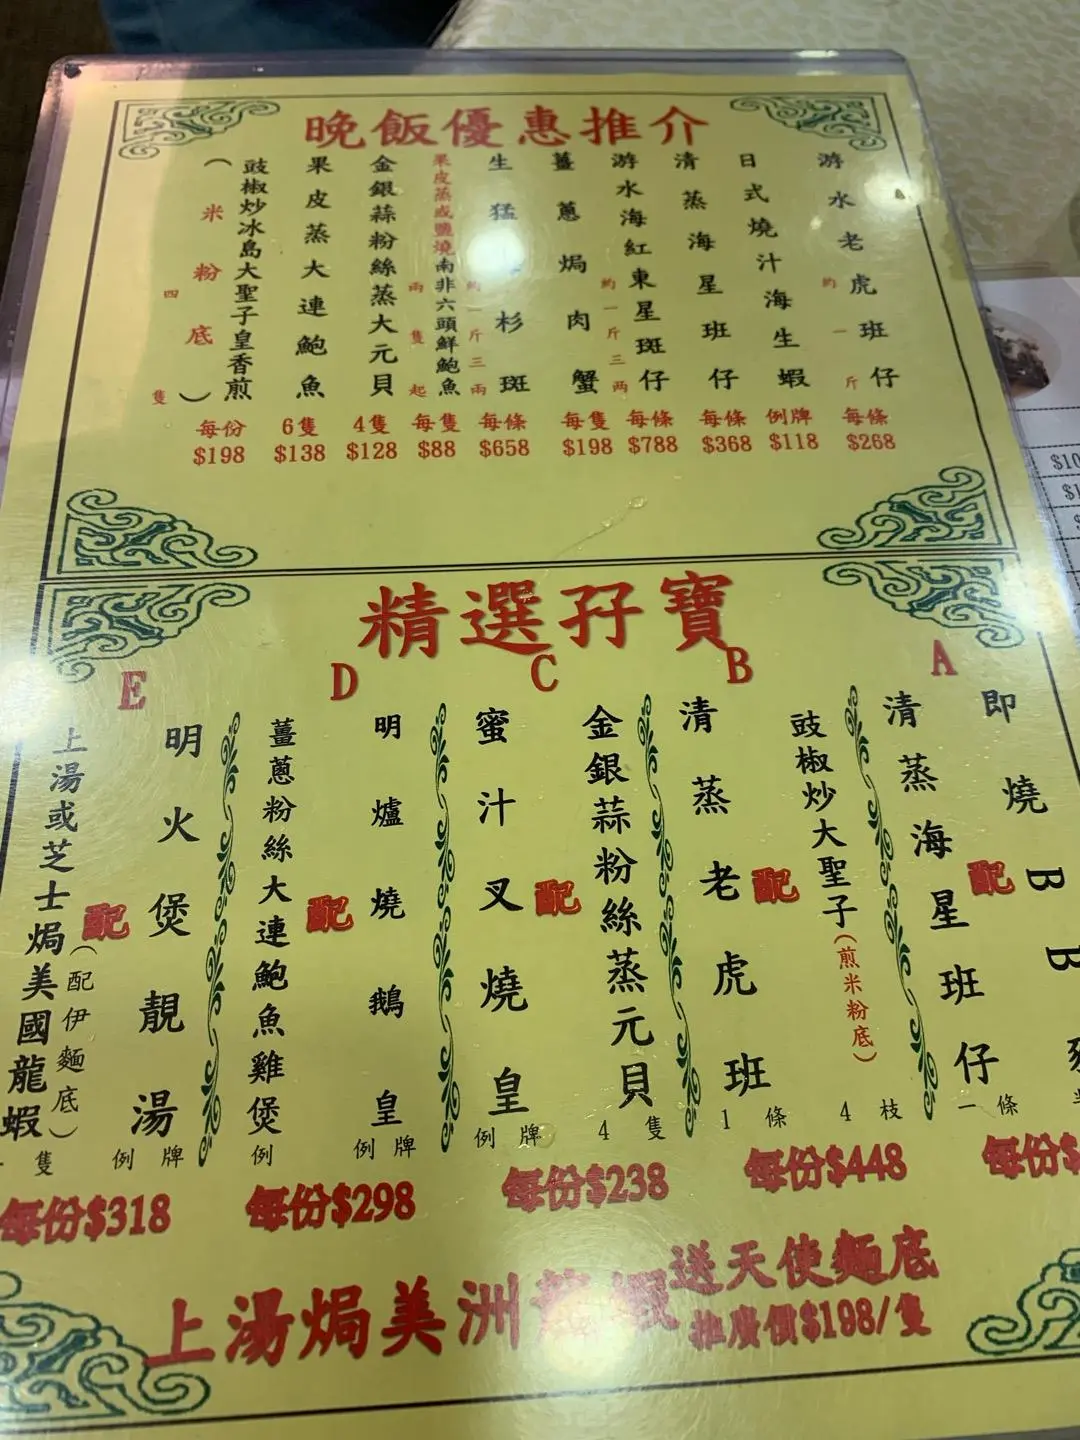 晚飯優惠推介
游水老虎班仔
約一斤
每條
$268
日式燒汁海生蝦
例牌
$118
清蒸海星班仔
每條
$368
游水海紅東星斑仔
約一斤三两
每條
$788
薑蔥焗肉蟹
每隻
$198
生猛
杉斑
約一斤三兩
每條
$658
果皮蒸或鹽燒南非六頭鮮鮑魚
兩隻起
每隻
$88
金銀蒜粉絲蒸大元貝
4隻
$128
果皮蒸大連鮑魚
6隻
$138
豉椒炒冰島大聖子皇香煎
(米粉底)
四隻
每份
$198
精選孖寶
A
即燒BB
配
清蒸海星班仔
一條
每份$
B
豉椒炒大聖子(煎米粉底)
4枝
配
清蒸老虎班
1條
每份$448
C
金銀蒜粉絲蒸元貝
4隻
配
蜜汁叉燒皇
例牌
每份$238
D
明爐燒鵝皇
例牌
配
薑蔥粉絲大連鮑魚雞煲
例
每份$298
E
明火煲靚湯
例牌
配
上湯或芝士焗美國龍蝦
(配伊麵底)
隻
每份$318
上湯焗美洲龍蝦
送天使麵底
推廣價$198/隻
$10